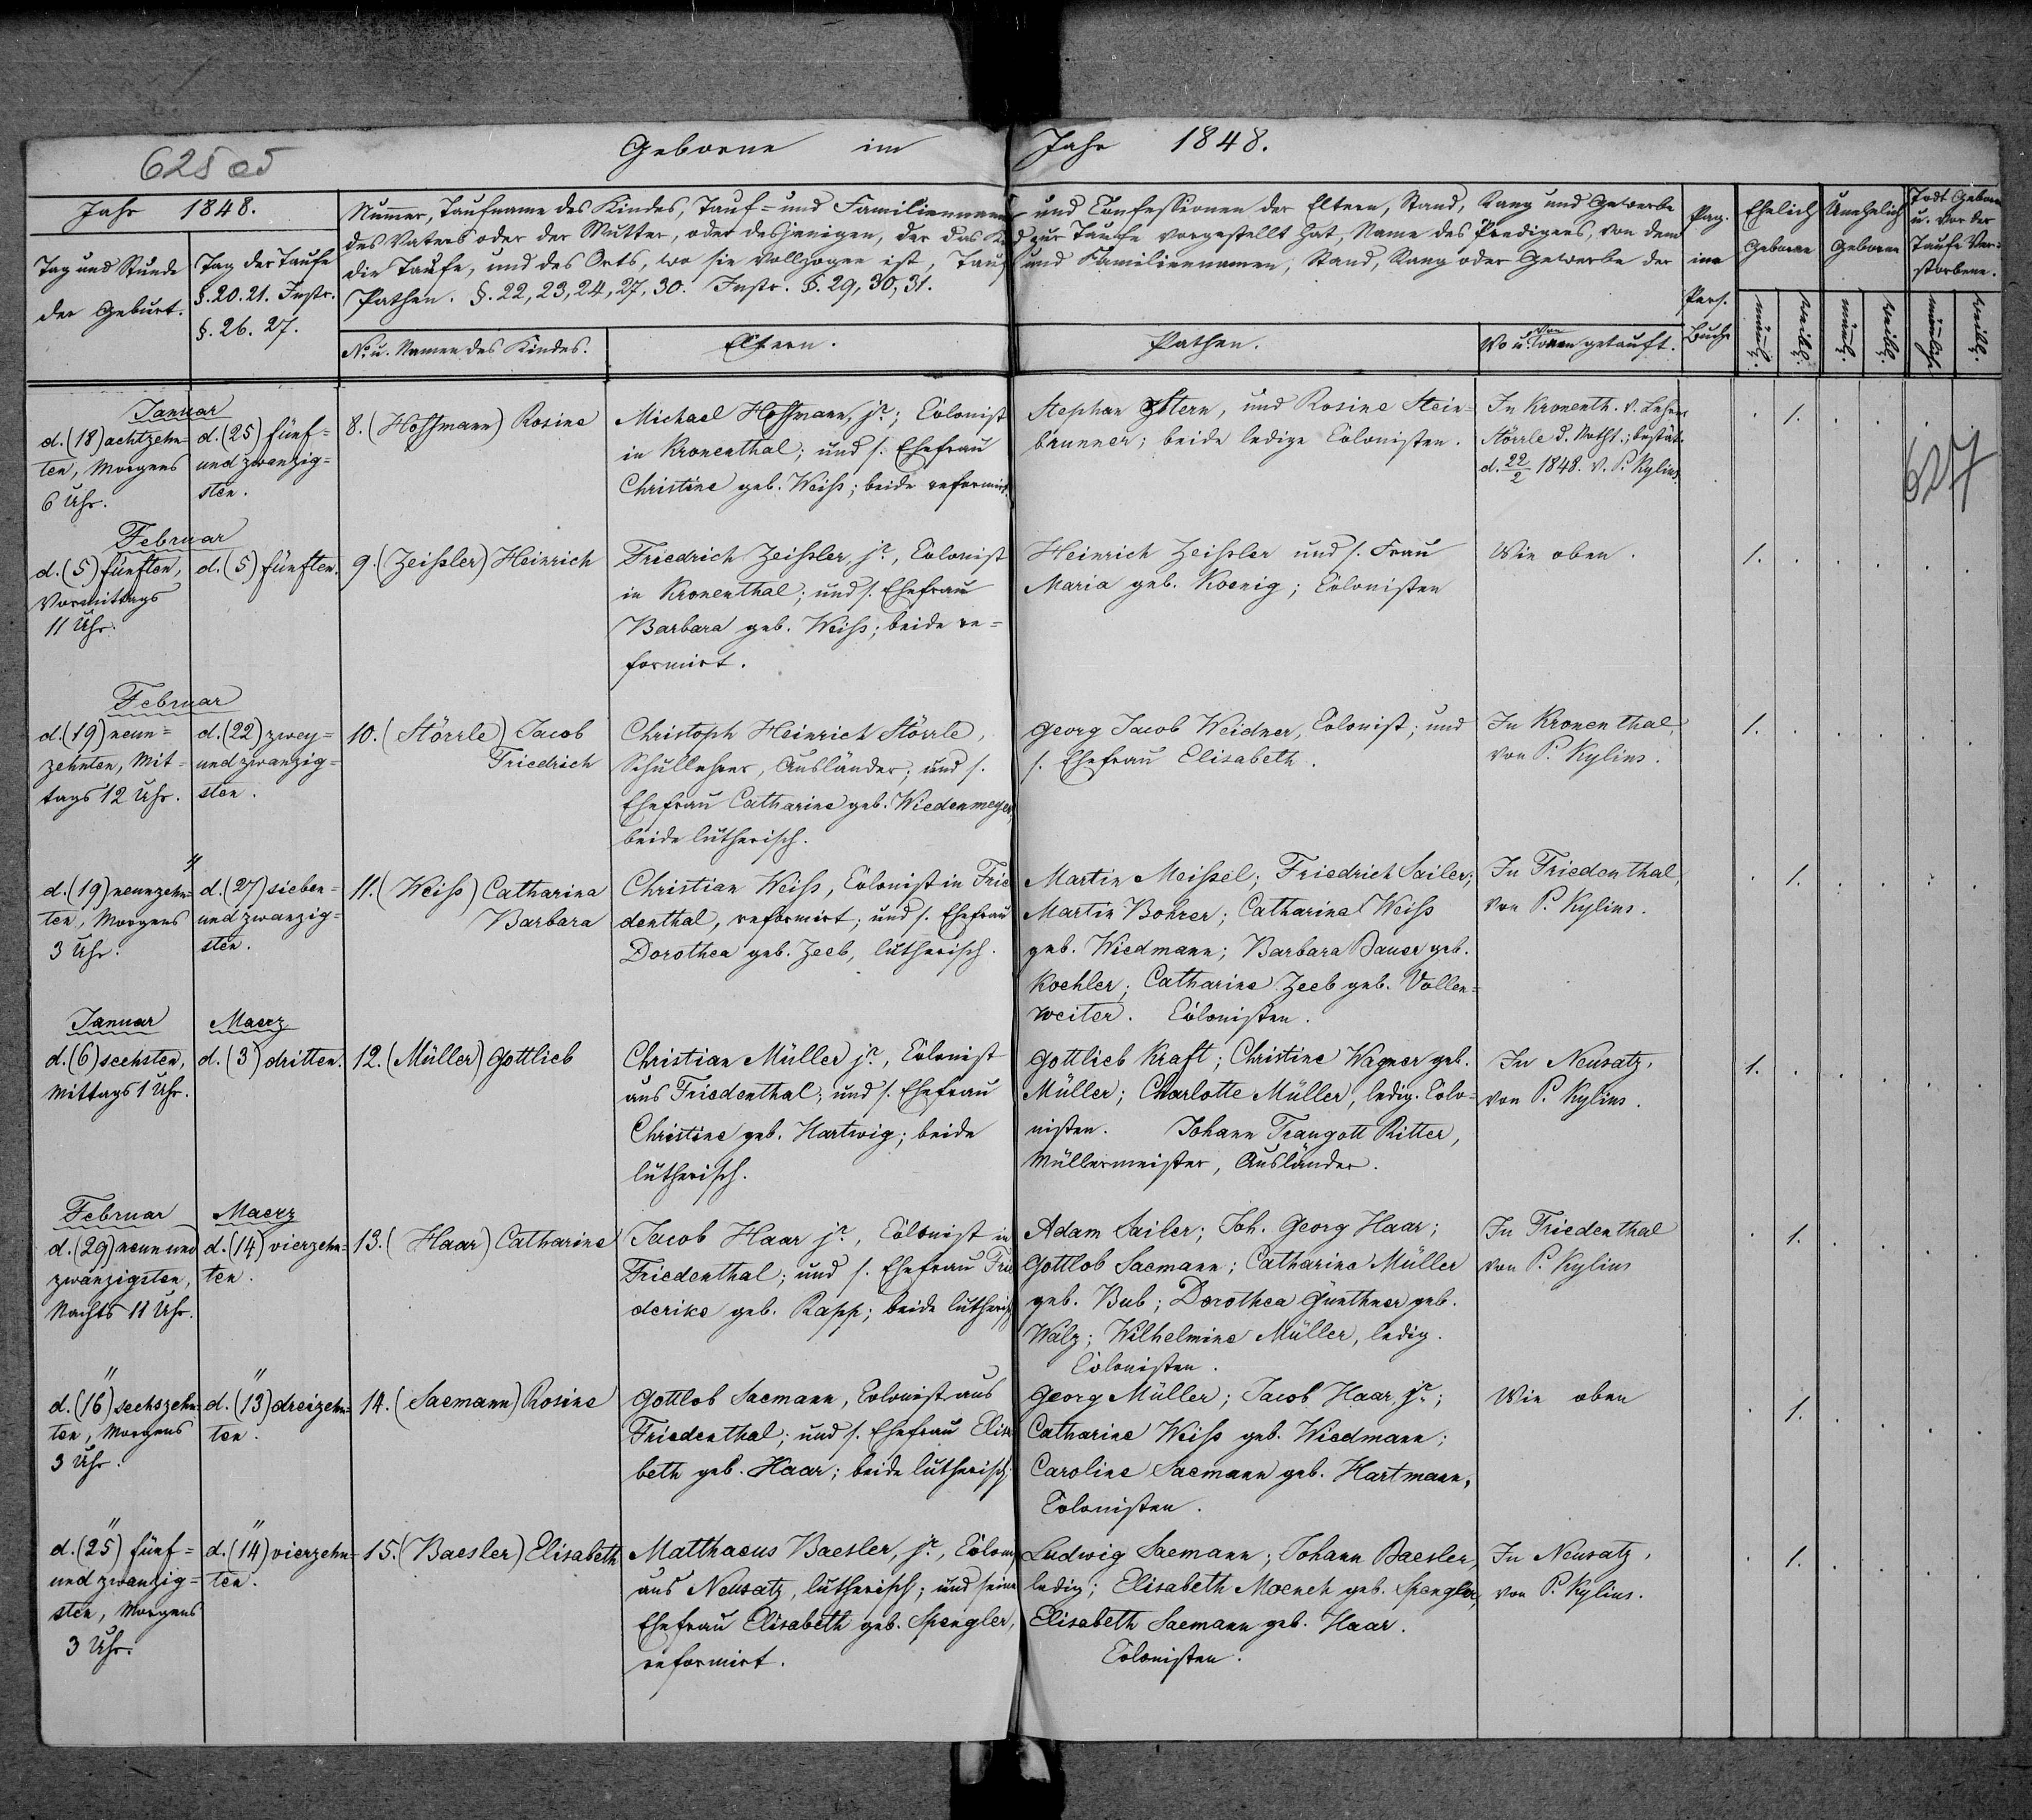 625 об
Geborne im Jahr 1848.
Jahr 1848.
Tag und Stunde der Geburt.
Tag der Taufe §. 20. 21. Instr. §. 26. 27.
Numer, Taufname des Kindes, Tauf- und Familiennamen und Confessionen der Eltern, Stand, Rang und Gewerbe
des Vaters oder der Mutter, oder desjenigen, der das Kind zur Taufe vorgestellt hat, Name des Predigers, von dem
die Taufe, und des Orts, wo sie vollzogen ist, Tauf und Familiennamen, Stand, Rang oder Gewerbe der
Pathen. §. 22, 23, 24, 27, 30. Instr. §. 29, 30, 31.
No. u. Namen des Kindes.
Eltern.
Pathen.
Wo u. von wem getauft.
Pag. im Pers. Buche
Ehelich Geboren
Unehelich Geboren
Todt Geborn u. vor der Taufe Verstorbene.
männl.
weibl.
männl.
weibl.
männliche
weibl.
Januar
d. (18) achtzehn-
ten, Morgens
6 Uhr.
d. (25) fünf-
und zwanzig-
sten.
8. (Hoffmann) Rosine
Michael Hoffmann, jr.; Colonist
in Kronenthal; und s. Ehefrau
Christine geb. Weiß; beide reformirt.
Stephan Stern, und Rosine Stein-
brunner; beide ledige Colonisten.
In Kronenth. v. Lehrer
Störrle d. Notht.; bestät.
d. 22/2 1848. v. P. Kylius.
1.
627
Februar
d. (5) fünften,
Vormittags
11 Uhr.
d. (5) fünften.
9. (Zeißler) Heinrich
Friedrich Zeißler, jr., Colonist
in Kronenthal; und s. Ehefrau
Barbara geb. Weiß; beide re-
formirt.
Heinrich Zeißler und s. Frau
Maria geb. Koenig; Colonisten
Wie oben.
1.
Februar
d. (19) neun-
zehnten, Mit-
tags 12 Uhr.
d. (22) zwey-
und zwanzig-
sten.
10. (Störrle) Jacob
Friedrich
Christoph Heinrich Störrle,
Schullehrer, Ausländer; und s.
Ehefrau Catharine geb. Wiedenmeyer,
beide lutherisch.
Georg Jacob Weidner, Colonist; und
s. Ehefrau Elisabeth.
In Kronenthal,
von P. Kylius.
1.
"
d. (19) neunzehn-
ten, Morgens
3 Uhr.
d. (27) sieben-
und zwanzig-
sten.
11. (Weiß) Catharina
Barbara
Christian Weiß, Colonist in Frie
denthal, reformirt; und s. Ehefrau
Dorothea geb. Zeeb, lutherisch.
Martin Meißel; Friedrich Sailer;
Martin Bohrer; Catharina Weiß
geb. Wiedmann; Barbara Bauer geb.
Koehler; Catharine Zeeb geb. Vollen-
weiter. Colonisten.
In Friedenthal,
von P. Kylius.
1.
Januar
d. (6) sechsten,
Mittags 1 Uhr.
Maerz
d. (3) dritten.
12. (Müller) Gottlieb
Christian Müller jr., Colonist
aus Friedenthal; und s. Ehefrau
Christine geb. Hartwig; beide
lutherisch.
Gottlieb Kraft; Christine Wagner geb.
Müller; Charlotte Müller, ledig. Colo-
nisten. Johann Traugott Ritter,
Müllermeister, Ausländer.
In Neusatz,
von P. Kylius.
1.
Februar
d. (29) neun und
zwanzigsten,
Nachts 11 Uhr.
Maerz
d. (14) vierzehn-
ten.
13. (Haar) Catharine
Jacob Haar jr., Colonist in
Friedenthal; und s. Ehefrau Frie
derike geb. Rapp; beide lutherisch
Adam Sailer; Joh. Georg Haar;
Gottlob Saemann; Catharina Müller
geb. Bub; Dorothea Günthner geb.
Walz; Wilhelmine Müller, ledig.
Colonisten.
In Friedenthal
von P. Kylius
1.
"
d. (16) sechszehn-
ten, Morgens
3 Uhr.
"
d. (13) dreizehn-
ten.
14. (Saemann) Rosine
Gottlob Saemann, Colonist aus
Friedenthal; und s. Ehefrau Elisa
beth geb. Haar; beide lutherisch.
Georg Müller; Jacob Haar, jr.;
Catharine Weiß geb. Wiedmann;
Caroline Saemann geb. Hartmann,
Colonisten.
Wie oben
1.
"
d. (25) fünf-
und zwanzig-
sten, Morgens
3 Uhr.
"
d. (14) vierzehn-
ten.
15. (Baesler) Elisabeth
Matthaeus Baesler, jr., Colonist
aus Neusatz, lutherisch; und seine
Ehefrau Elisabeth geb. Spengler,
reformirt.
Ludwig Saemann; Johann Baesler,
ledig; Elisabeth Moench geb. Spengler,
Elisabeth Saemann geb. Haar.
Colonisten.
In Neusatz,
von P. Kylius.
1.